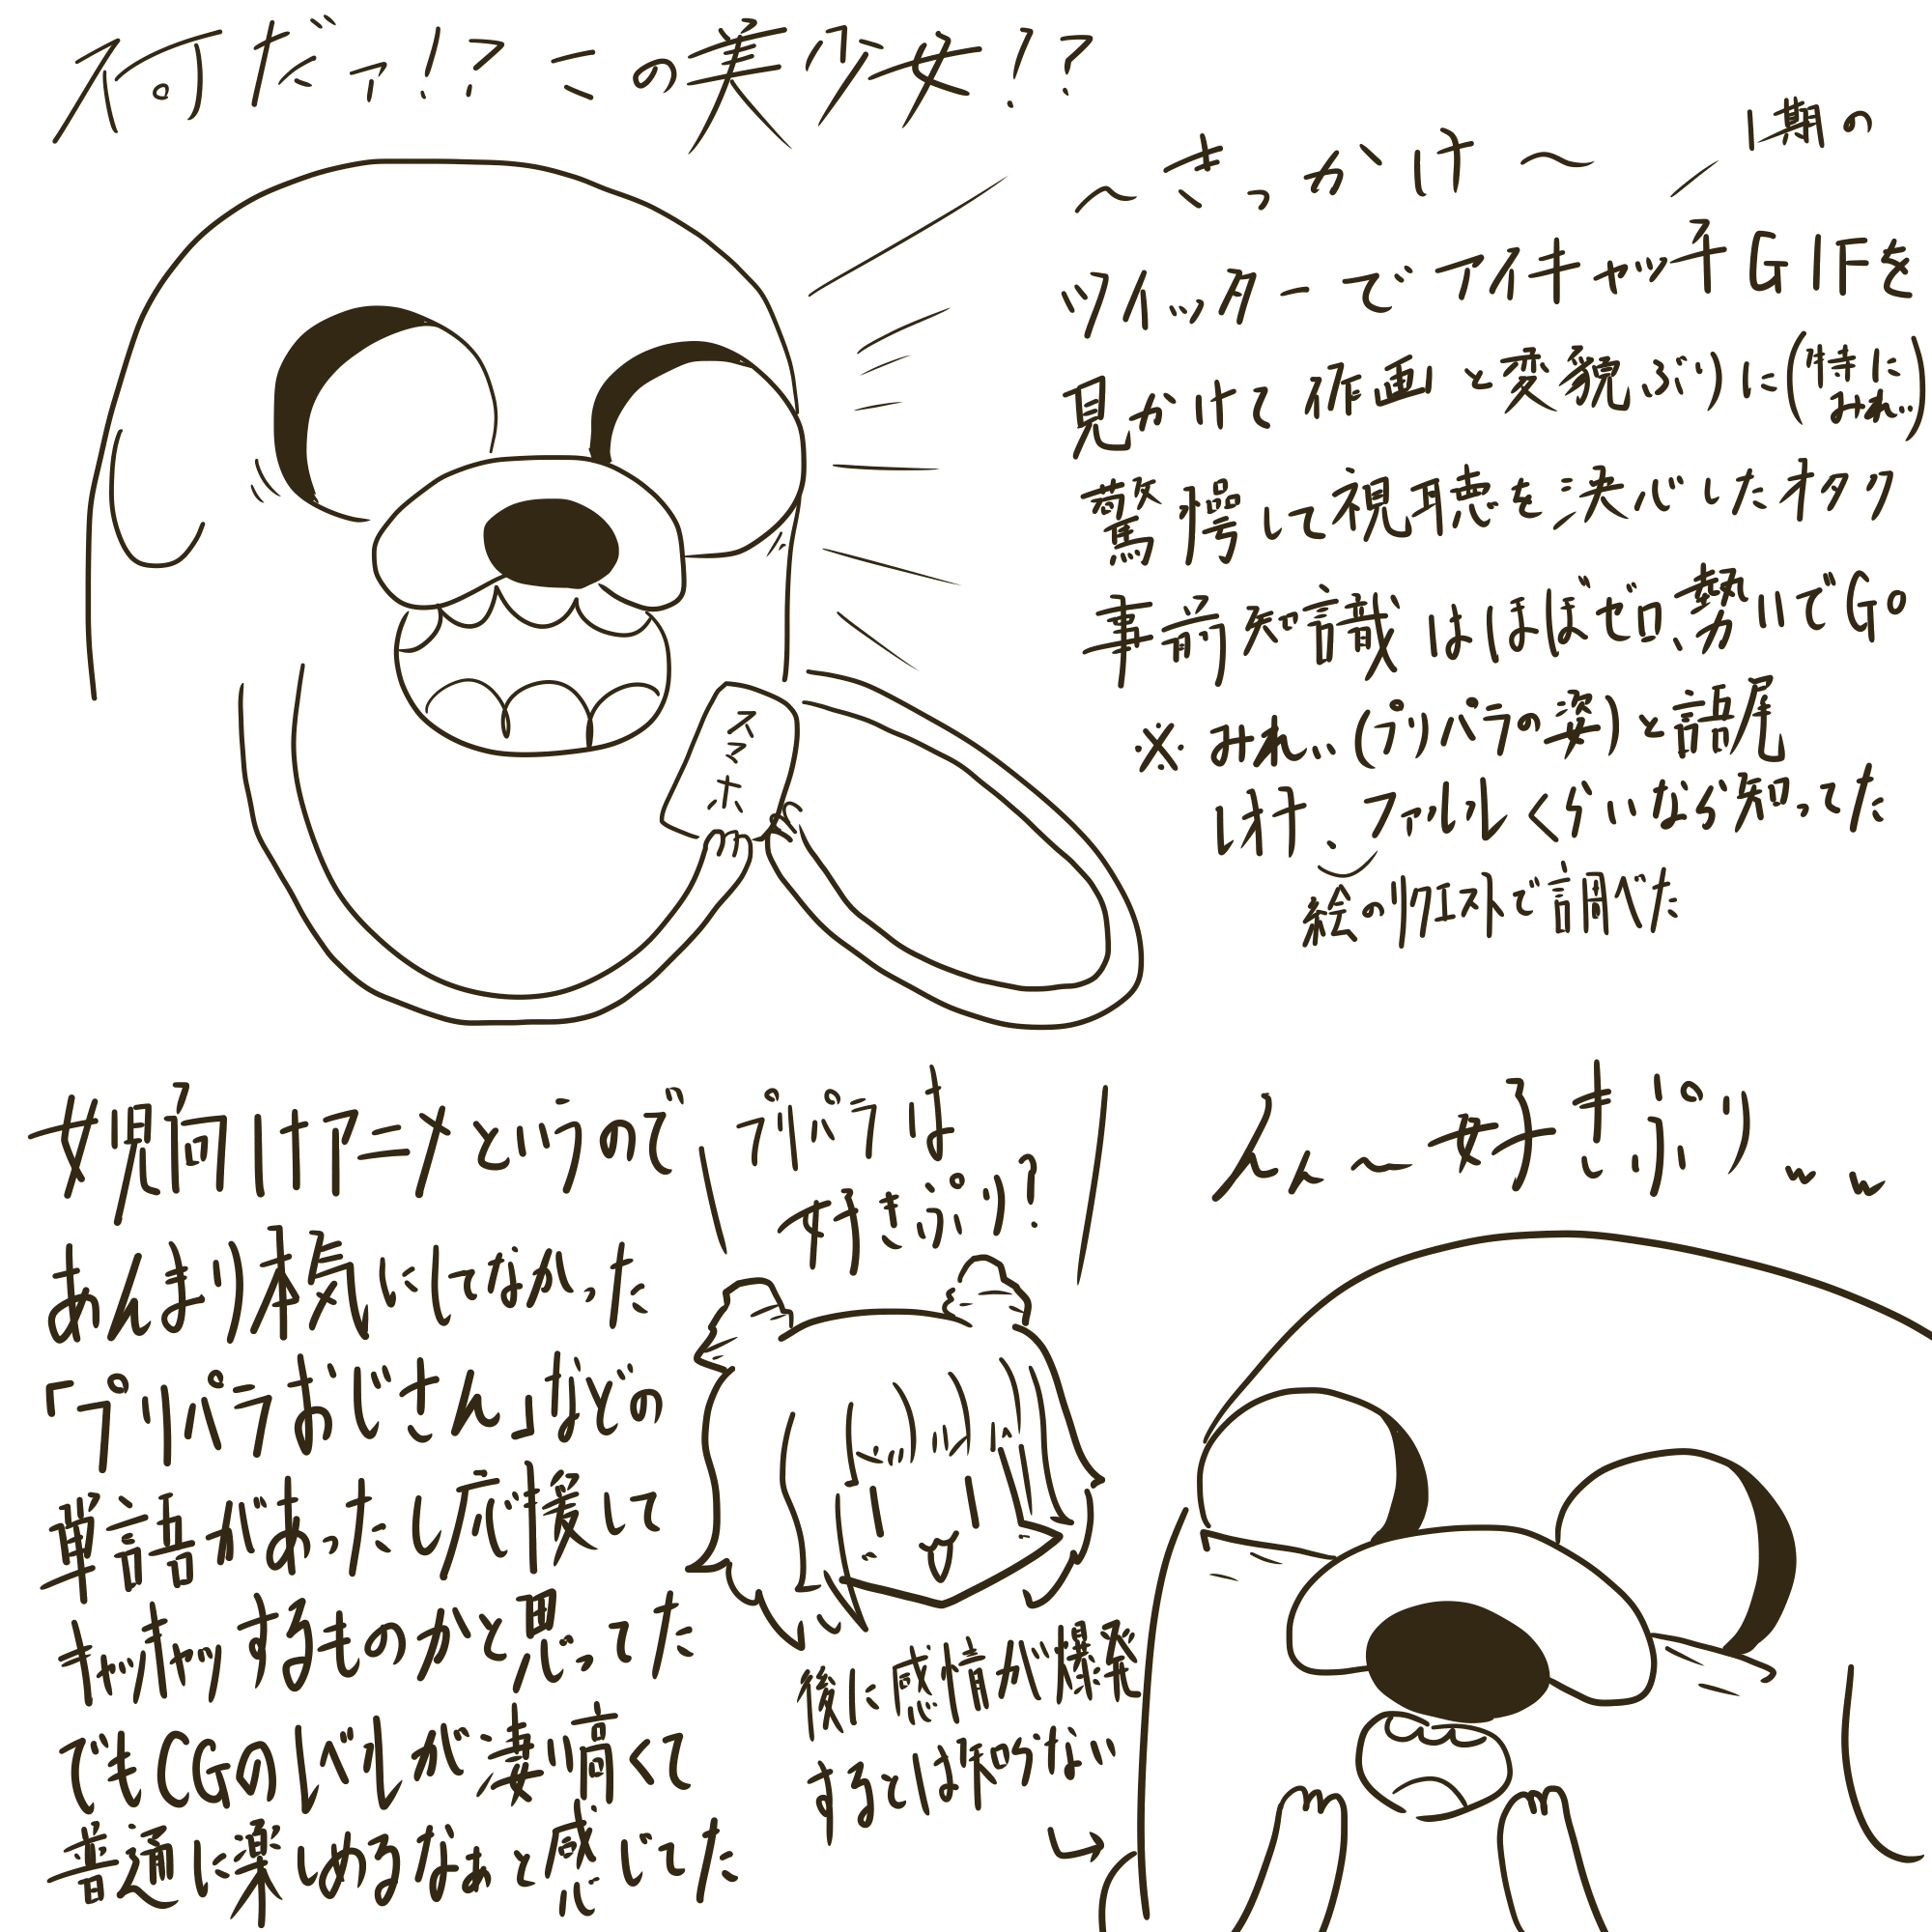 何だァ!?この美少女!?
〜きっかけ〜
1期の
ツイッターでアイキャッチGIFを
見かけて作画と変貌ぶりに(特にみれぃ)
驚愕して視聴を決心したオタク
事前知識はほぼゼロ、勢いでGo
※みれぃ(プリパラの姿)と語尾
だけ、ファルルくらいなら知ってた
絵のリクエストで調べた
スマホ
女児向けアニメというので
あんまり本気にしてなかった
「プリパラおじさん」などの
単語があったし応援して
キャッキャッするものかと思ってた
でもCGのレベルが凄い高くて
普通に楽しめるなぁと感じてた
プリパラは
好きぷり?
後に感情が爆発
するとは知らない
ん〜好きぷりww